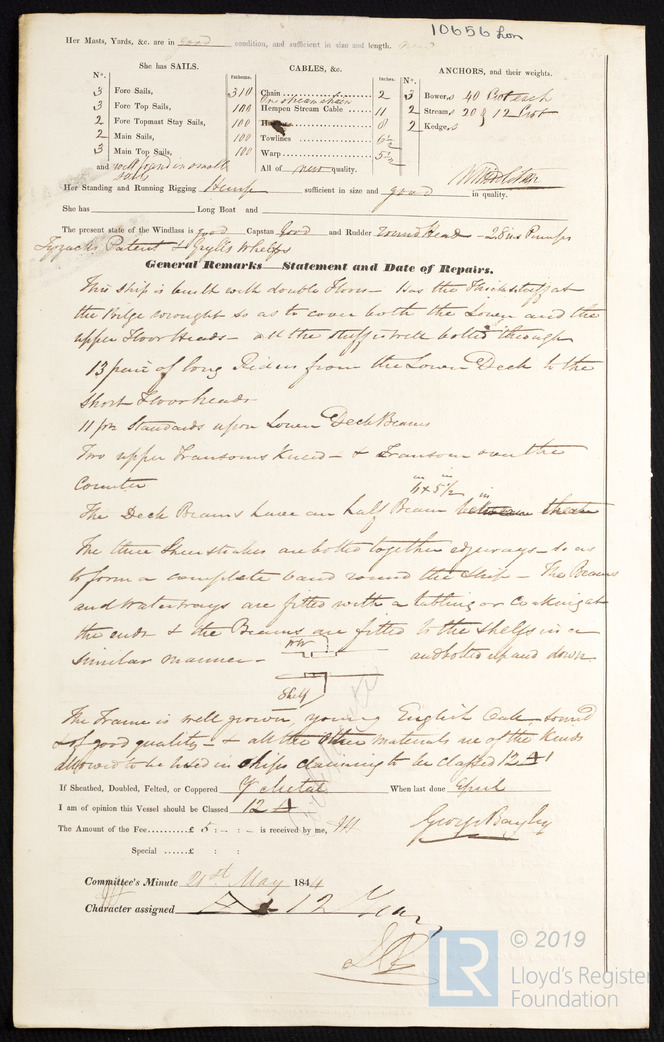 10656 Lon
Her Masts, Yards, &c. are in good condition, and sufficient in size and length.
She has SAILS.
CABLES, &c.
ANCHORS, and their weights.
N°.
Fathoms.
Inches.
N°.
3 Fore Sails,
3 Fore Top Sails,
2 Fore Topmast Stay Sails,
2 Main Sails,
3 Main Top Sails,
and well found in small sails
Chain 310 2
Or stream chain
Hempen Stream Cable 100 11
100 8
Towlines 100 6½
Warp 100 5½
All of new quality.
3 Bowers 40 Cwt each
2 Stream 20 & 12 Cwt
2 Kedges
Her Standing and Running Rigging Hemp sufficient in size and good in quality.
She has Long Boat and
The present state of the Windlass is good Capstan Good and Rudder round Head - 2 Pumps
Tyzacks Patent & Grylls Whelps
General Remarks—Statement and Date of Repairs.
This ship is built with double Floors - has the Thickstuff at
the Bilge wrought so as to cover both the Lower and the
upper Floor Heads - all the stuff is well bolted through
13 pair of long Riders from the Lower Deck to the
Short Floor heads
11 pr Standards upon Lower Deck Beams
Two upper Transoms Kneed - & Transom over the
Counter
The Deck Beams have an half Beam between them
in in
4 x 5½ in
The three Sheerstrakes are bolted together edgeways - so as
to form a complete band round the Ship - The Beams
and Waterways are fitted with a tabling or Coaking at
the ends & the Beams are fitted to the Shelfs in a
similar manner - and bolted up and down.
WW
Shelf
The Frame is well grown, young English Oak, sound
& of good quality - & all the other materials are of the kinds
allowed to be used in ships claiming to be classed 12 A 1
If Sheathed, Doubled, Felted, or Coppered Y Metal When last done April
I am of opinion this Vessel should be Classed 12 A
The Amount of the Fee £ 5 : - : - is received by me,
George Bayley
Special £ : :
Committee's Minute 21st May 1844
Character assigned A 1 12 Years
LR
© 2019
Lloyd's Register
Foundation